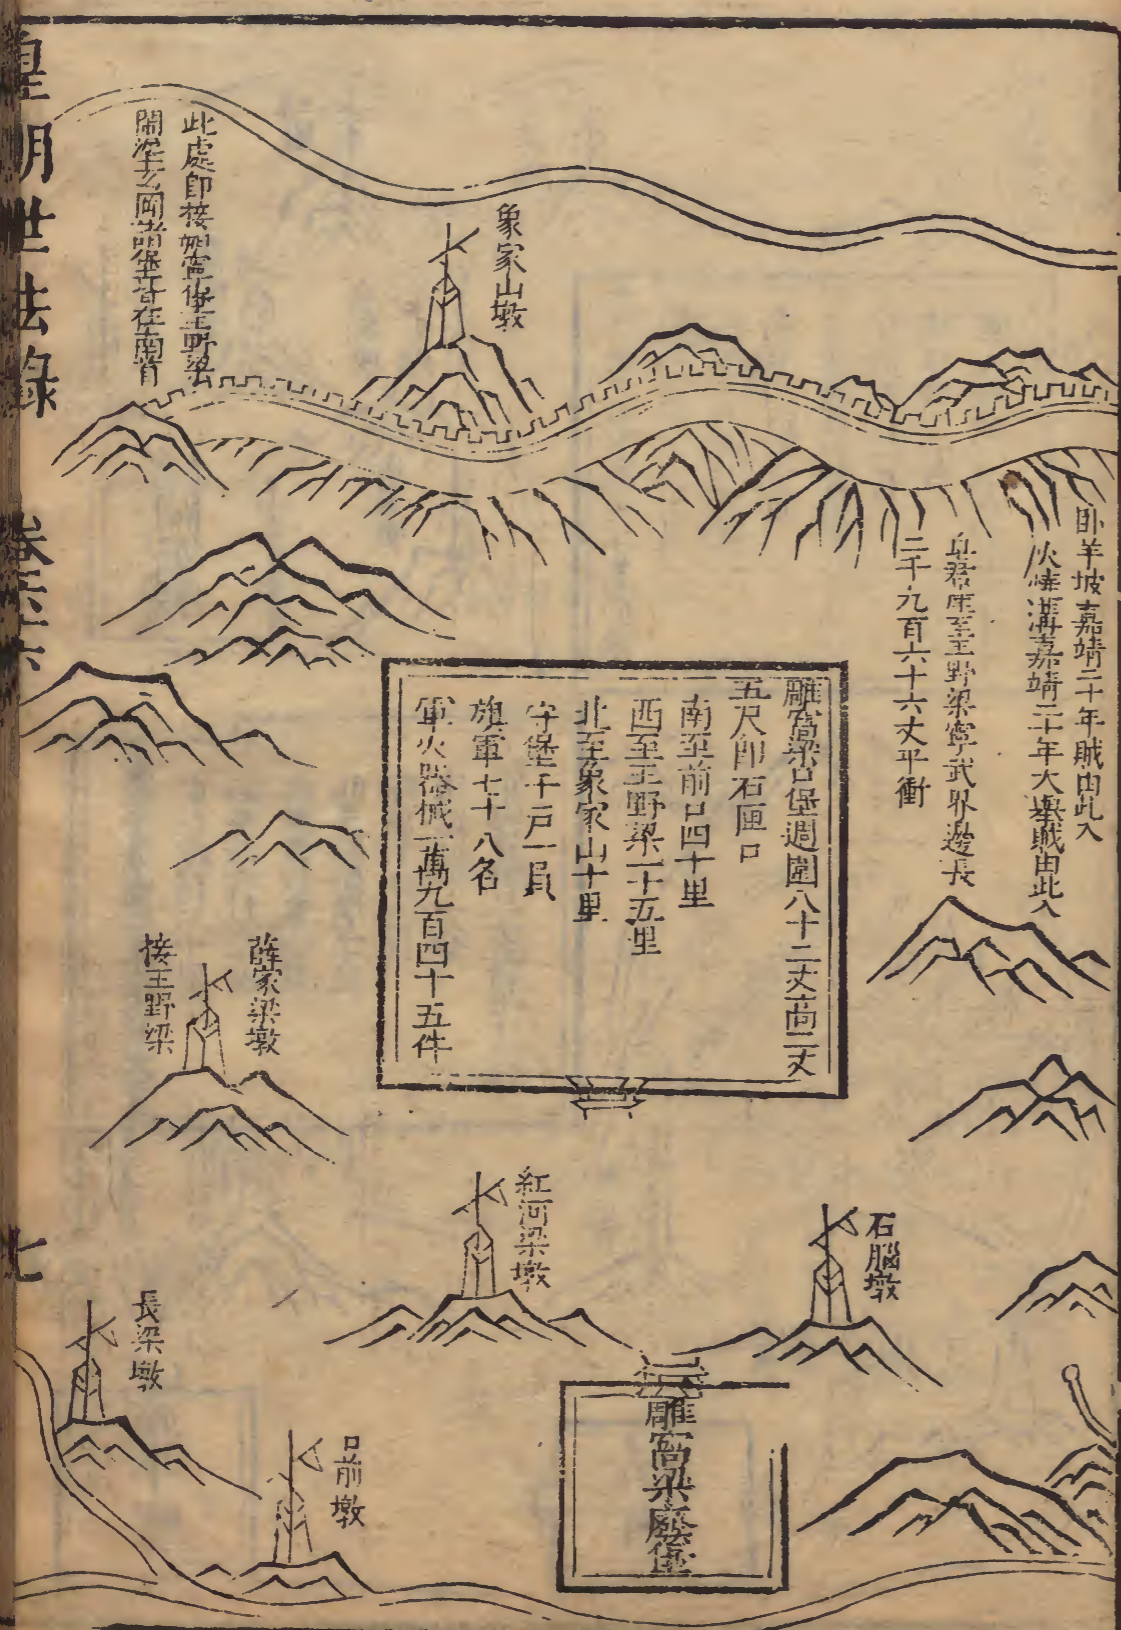 卧羊坡嘉靖二十年賊由此入
火燒溝嘉靖二十年大舉賊由此入
至王野梁寧武界邊長
二千九百六十六丈平衝
象家山墩
此處卽接
雕窩梁口堡週圍八十二丈高二丈
五尺卽石匣口
南至前口四十里
西至王野梁一十五里
北至象家山十里
守堡千戸一員
旗軍七十八名
軍火器械一萬九百四十五件
薛家梁墩
接王野梁
石腦墩
紅河梁墩
長梁墩
口前墩
雕窩梁廢堡
皇明世法錄
七